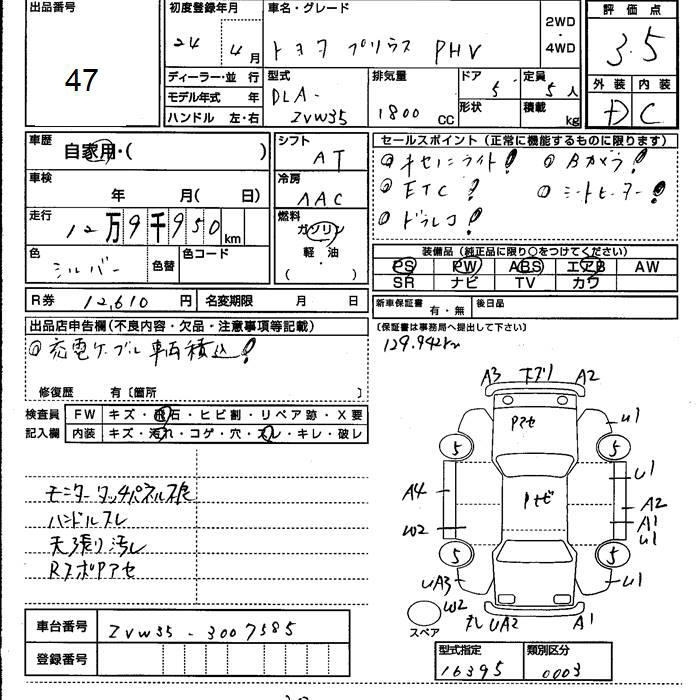 出品番号
47
初度登録年月
24 年 4月
車名・グレード
トヨタ プリウス PHV
2WD
・
4WD
評価点
3.5
ディーラー・並 行
モデル年式 年
ハンドル 左・右
型式
DLA-
ZVW35
排気量
1800 CC
ドア
5
定員
5人
形状
積載
kg
外装 内装
D C
車歴
自家用・( )
車検
年 月( 日)
走行
12万9千950km
色
シルバー
色替
色コード
シフト
AT
冷房
AAC
燃料
ガソリン
軽・油
( )
セールスポイント(正常に機能するものに限ります)
◎オセロニライト! ◎Bカメラ!
◎ETC! ◎シートヒーター!
◎ドラレコ!
装備品(純正品に限り○をつけてください)
PS PW ABS エアB AW
SR ナビ TV カワ
R券 12,610円
名変期限 月 日
新車保証書 有・無
後日品
(保証書は事務局へ提出して下さい)
129.942km
出品店申告欄(不良内容・欠品・注意事項等記載)
◎充電ケーブル車両積込!
修復歴 有〔箇所 〕
検査員
記入欄
FW キズ・飛石・ヒビ割・リペア跡・X要
内装 キズ・汚れ・コゲ・穴・スレ・キレ・破レ
モニタータッチパネル不良
ハンドルスレ
天張り汚レ
RスポPアセ
A3 下ズリ A2
Pアセ
U1
5 5
U1
A4
Pナビ
A2
A1
U1
W2
5 5
UA3
U1
W2
UA2
A1
スペア
車台番号 ZVW35-3007585
登録番号
型式指定
16395
類別区分
0003